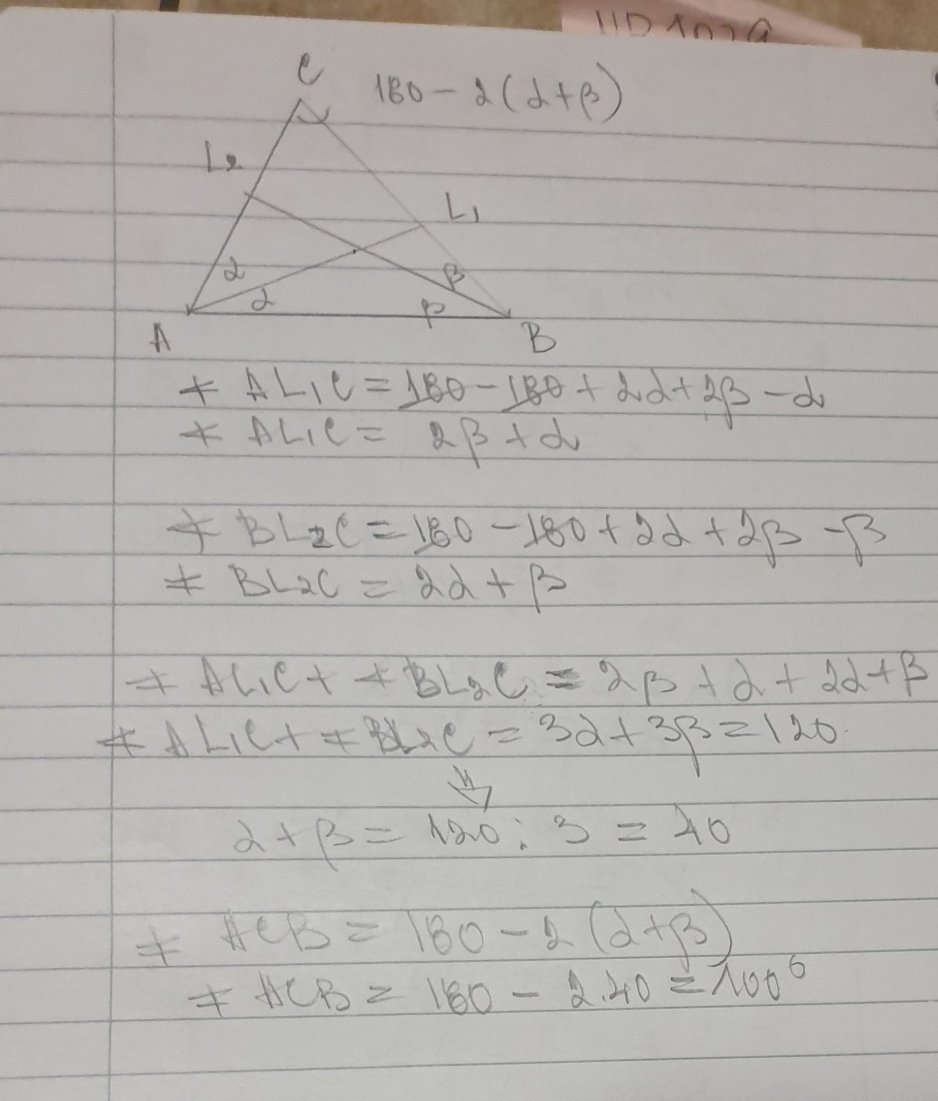 C 180 - 2(α+β)
L₂
L₁
α β
α β
A B
∢ AL₁C = 180 - 180 + 2α + 2β - α
∢ AL₁C = 2β + α
∢ BL₂C = 180 - 180 + 2α + 2β - β
∢ BL₂C = 2α + β
∢ AL₁C + ∢ BL₂C = 2β + α + 2α + β
∢ AL₁C + ∢ BL₂C = 3α + 3β = 120
⇓
α + β = 120 : 3 = 40
∢ ACB = 180 - 2(α+β)
∢ ACB = 180 - 2.40 = 100°